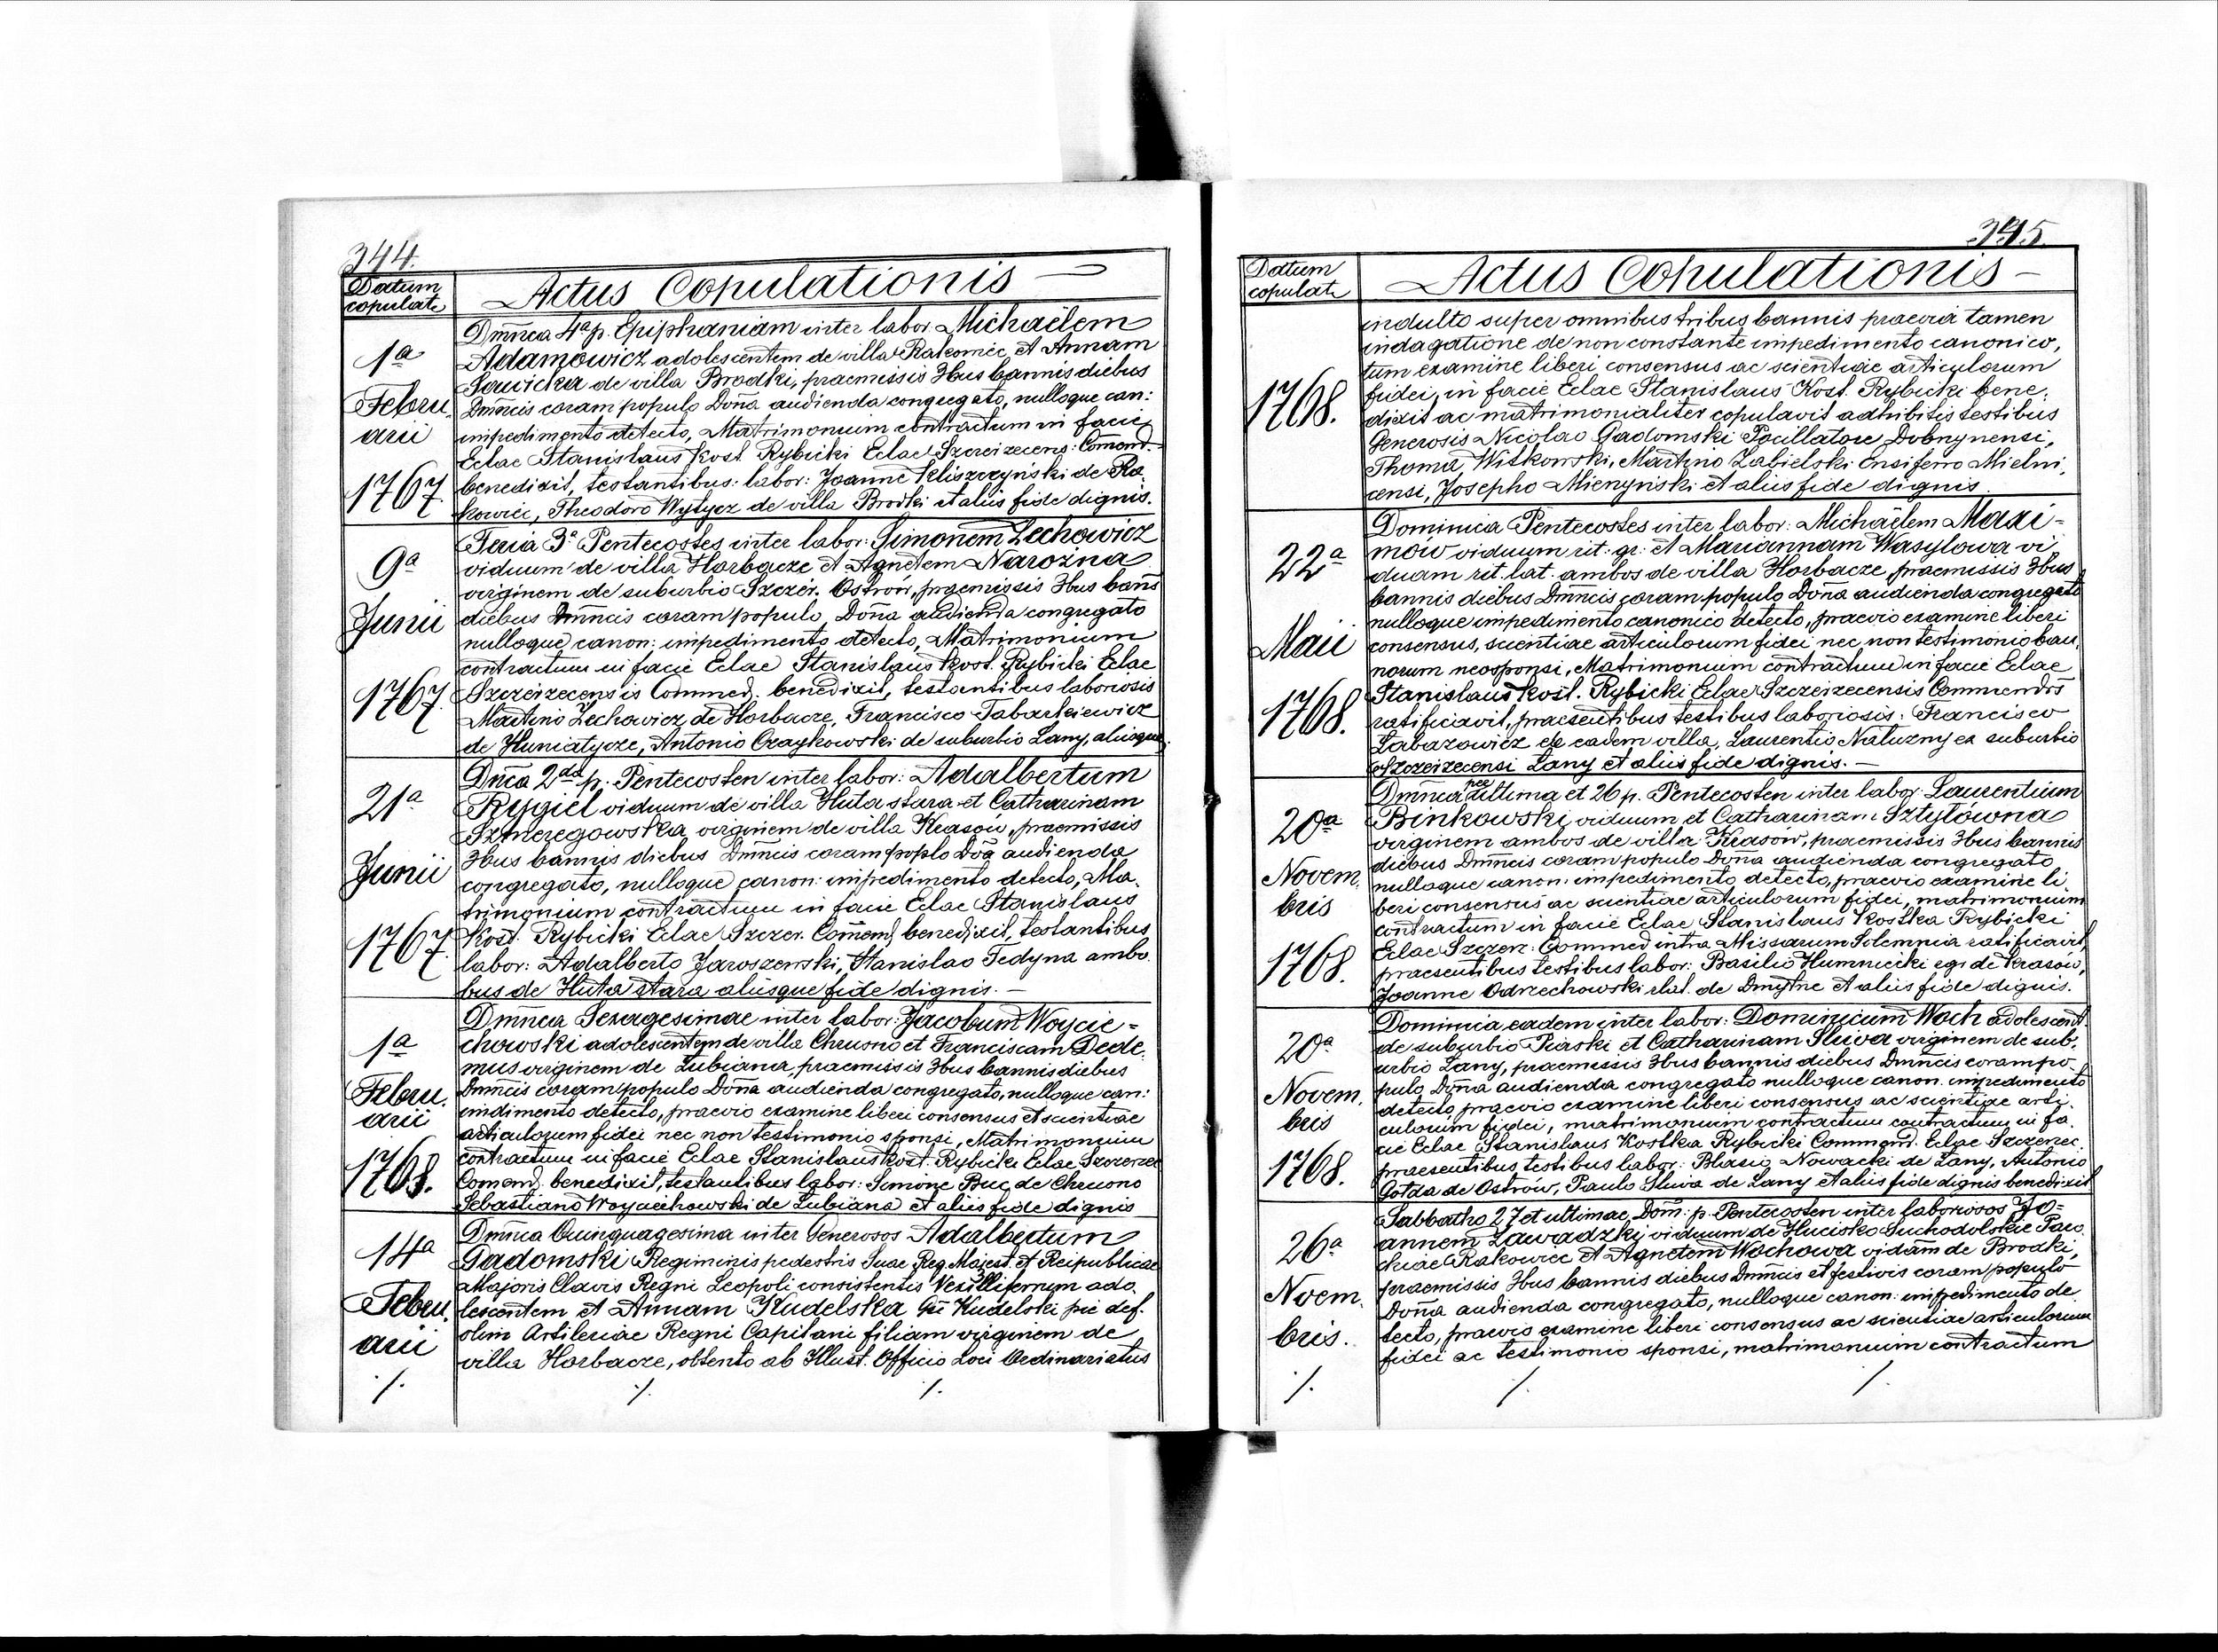 344.
Datum
copulati
Actus Copulationis —
1a
Febru
arii
1767.
Dmnica 4a p. Epiphaniam inter labor. Michaëlem
Adamowicz adolescentem de villa Rakowiec et Annam
Sawicka de villa Brodki, praemissis 3bus bannis diebus
Dmncis coram populo Dona audienda congregato, nulloque can:
impedimento detecto, Matrimonium contractum in facie
Eclae Stanislaus Kost. Rybicki Eclae Szczeizecens: Comend.
benedixit, testantibus: labor: Joanne Kliszczyński de Ra-
kowiec, Theodoro Wytycz de villa Brodki et aliis fide dignis.
9a
Junii
1767.
Feria 3a Pentecostes inter labor: Simonem Zechowicz
viduum de villa Horbacze et Agnetem Narożna
virginem de suburbio Szczeiz. Ostrów, praemissis 3bus bans
diebus Dmncis coram populo, Dona audienda congregato
nulloque canon: impedimento detecto, Matrimonium
contractum in facie Eclae Stanislaus Kost. Rybicki Eclae
Szczeizecensis Commed. benedixit, testantibus laboriosis
Martino Zechowicz de Horbacze, Francisco Tabarkiewicz
de Huniatycze, Antonio Czaykowski de suburbio Lany, aliisque.
21a
Junii
1767.
Dnca 2da p. Pentecosten inter labor: Adalbertum
Rygiel viduum de villa Huta stara et Catharinam
Szmeregowska virginem de villa Krasów, praemissis
3bus bannis diebus Dmncis coram poplo Doa audienda
congregato, nulloque canon: impedimento detecto, Ma-
trimonium contractum in facie Eclae Stanislaus
Kost. Rybicki Eclae Szczer. Comend, benedixit, testantibus
labor: Adalberto Jaroszewski, Stanislao Fedyna ambo.
bus de Huta stara aliisque fide dignis. —
1a
Febru.
arii
1768.
Dmnca Sexagesimae inter labor: Jacobum Woycie=
chowski adolescentem de villa Chrusno et Franciscam Dede.
mus virginem de Lubiana, praemissis 3bus bannis diebus
Dmncis coram populo Dona audienda congregato, nulloque can:
imdimento detecto, praevio examine liberi consensus et scientiae
articulorum fidei nec non testimonio sponsi, Matrimonium
contractum in facie Eclae Stanislaus Kost. Rybicki Eclae Szczerzec
Comend. benedixit, testantibus labor: Simone Buc de Chrusno
Sebastiano Woyciechowski de Lubiana et aliis fide dignis
14a
Febru.
arii
Dmnca Quinquagesima inter Generosos Adalbertum
Gadomski Regiminis pedestris Suae Reg. Majest. et Reipublicae
Majoris Clavis Regni Leopoli consistentis Vexilliferum ado.
lescentem et Annam Kudelska Gii Kudelski pie def.
olim Artileriae Regni Capitani filiam virginem de
villa Horbacze, obtento ab Illust. Officio Loci Ordinariatus
./. ./. ./.
345.
Datum
copulati
Actus Copulationis —
1768.
indulto super omnibus tribus bannis praevia tamen
indagatione de non constante impedimento canonico,
tum examine liberi consensus ac scientiae articulorum
fidei, in facie Eclae Stanislaus Kost. Rybicki bene.
dixit ac matrimonialiter copulavit adhibitis testibus
Generosis Nicolao Gadomski Pocillatore Dobrynensi,
Thoma Witkowski, Martino Zabielski Ensifero Mielni.
censi, Josepho Mienyński et aliis fide dignis.
22a
Maii
1768.
Dominica Pentecostes inter labor: Michaëlem Maxi=
mow viduum rit. gr. et Mariannam Wasylowa vi.
duam rit. lat. ambos de villa Horbacze, praemissis 3bus
bannis diebus Dmncis coram populo Dona audienda congregato
nulloque impedimento canonico detecto, praevio examine liberi
consensus, scientiae articulorum fidei nec non testimonio ban.
norum neosponsi, Matrimonium contractum in facie Eclae
Stanislaus Kost. Rybicki Eclae Szczeizecensis Commends
ratificavit, praesentibus testibus laboriosis: Francisco
Labazowicz ex eadem villa, Laurentio Naluzny ex suburbio
Szczeizecensi Lany et aliis fide dignis. —
20a
Novem.
bris
1768.
Dmnica pae ultima et 26 p. Pentecosten inter labor: Laurentium
Binkowski viduum et Catharinam Sztylówna
virginem ambos de villa Krasów, praemissis 3bus bannis
diebus Dmncis coram populo Dona audienda congregato
nulloque canon: impedimento detecto, praevio examine li.
beri consensus ac scientiae articulorum fidei, matrimonium
contractum in facie Eclae Stanislaus Kostka Rybicki
Eclae Szczerz: Commed intra Missarum Solemnia ratificavit,
praesentibus testibus labor: Basilio Humniecki r.gr. de Krasów,
Joanne Odrzechowski r.lat. de Dmytrie et aliis fide dignis.
20a
Novem.
bris
1768.
Dominica eadem inter labor: Dominicum Woch adolescent.
de suburbio Piaski et Catharinam Sliwa virginem de sub.
urbio Lany, praemissis 3bus bannis diebus Dmncis coram po.
pulo Dona audienda congregato nulloque canon. impedimento
detecto, praevio examine liberi consensus ac scientiae arti.
culorum fidei, matrimonium contractum contractum in fa.
cie Eclae Stanislaus Kostka Rybicki Commend. Eclae Szczerzec.
praesentibus testibus labor: Blasio Nowacki de Lany, Antonio
Gołda de Ostrów, Paulo Sliwa de Lany et aliis fide dignis benedixit
26a
Noem.
bris.
Sabbatho 27 et ultimae Dom: p. Pentecosten inter laboriosos Jo=
annem Zawadzki viduum de Hucisko Suchodolskie Paro.
chiae Rakowiec et Agnetem Wochowa vidam de Brodki,
praemissis 3bus bannis diebus Dmncis et festivis coram populo
Dona audienda congregato, nulloque canon: impedimento de
tecto, praevio examine liberi consensus ac scientiae articulorum
fidei ac testimonio sponsi, matrimonium contractum
./. ./. ./.